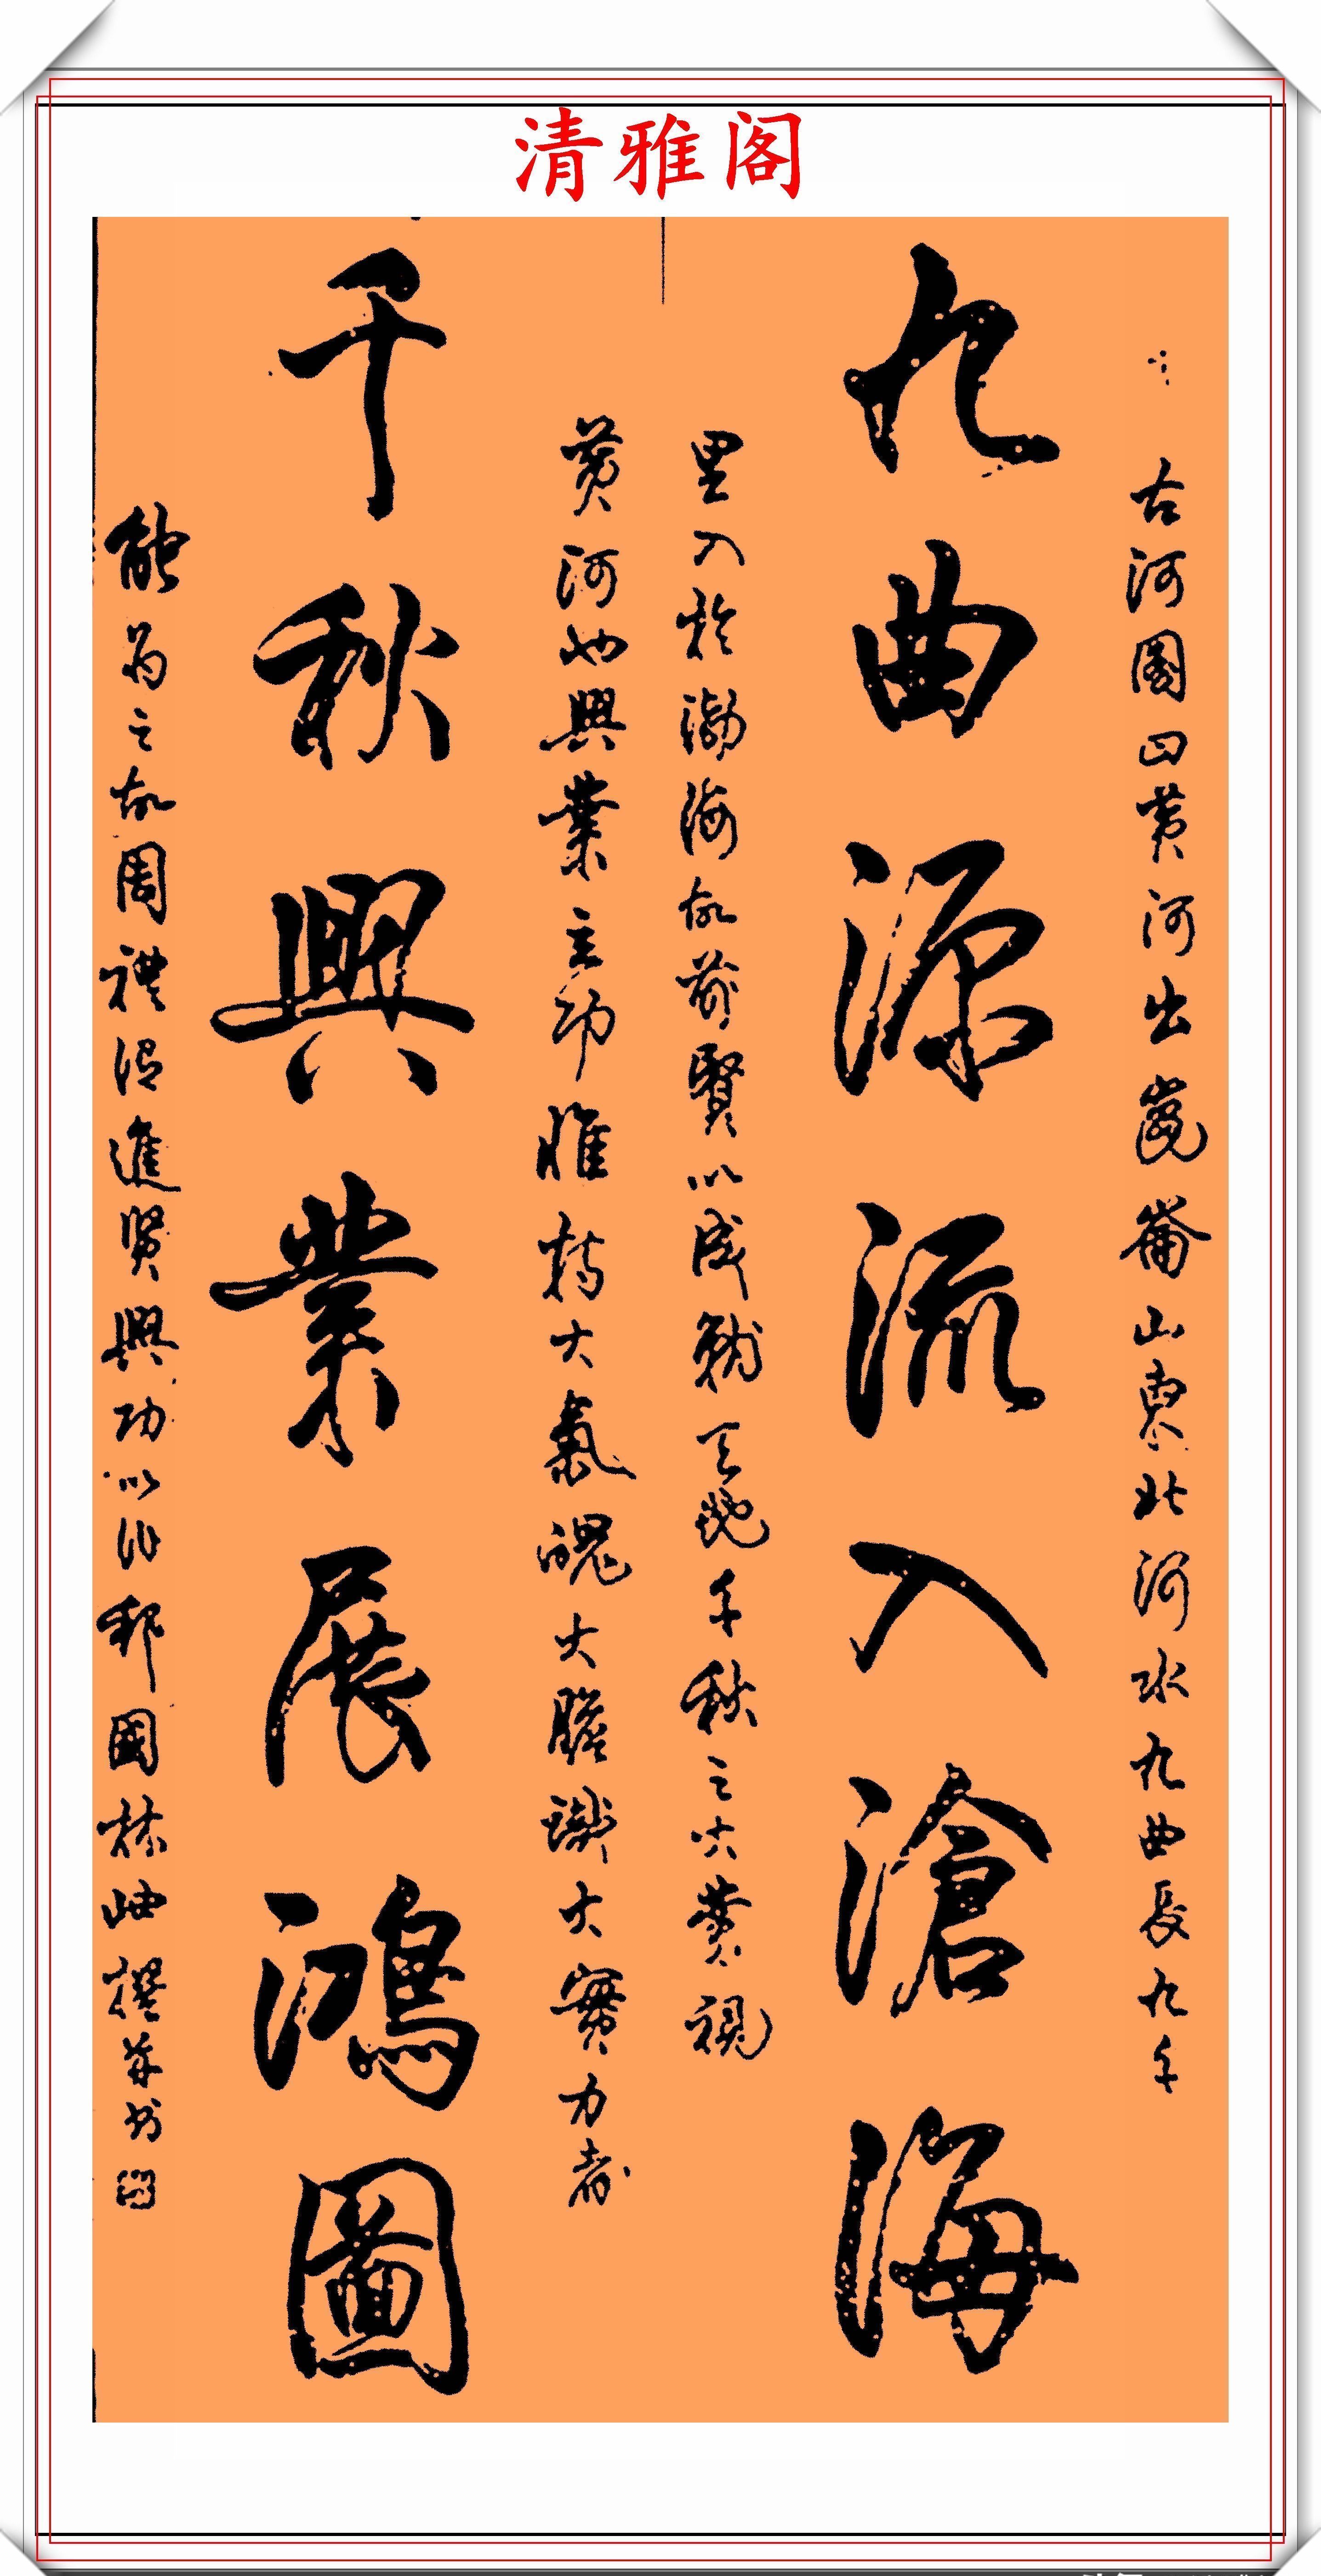 清雅阁
古河圖曰黄河出崑崙山東北河水九曲長九千
九曲源流入滄海
里入於渤海故前賢以成就天地千秋之大業視
黄河也興業立功惟持大氣魄大膽識大實力者
千秋興業展鴻圖
能為之故周禮謂進賢興功以作邦國林岫撰并书